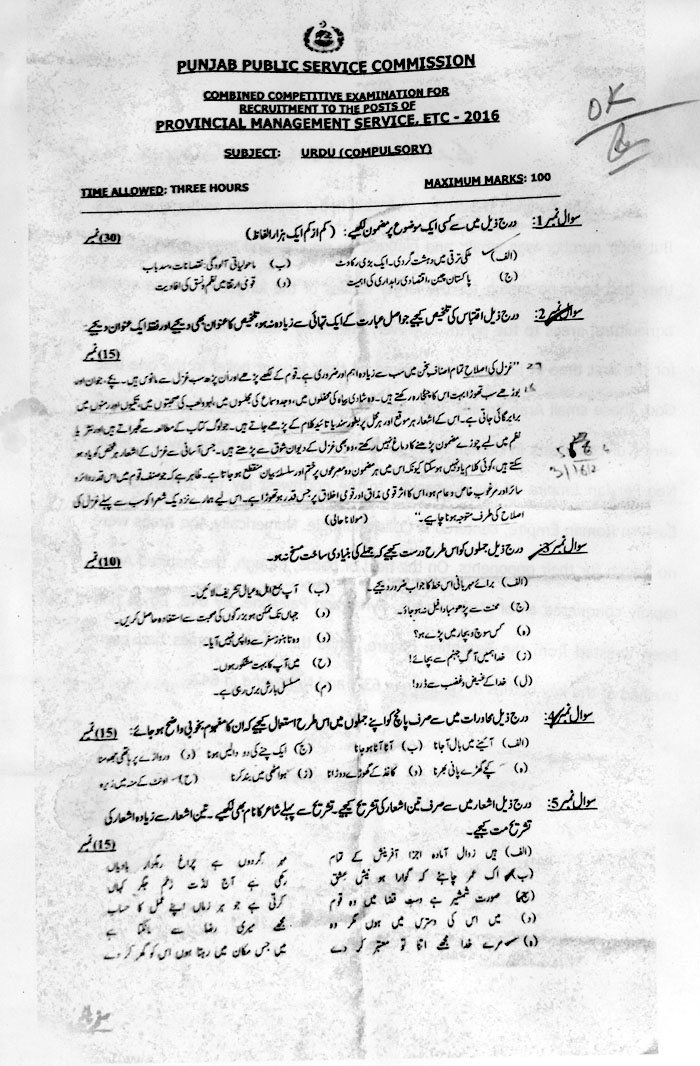 PUNJAB PUBLIC SERVICE COMMISSION
COMBINED COMPETITIVE EXAMINATION FOR
RECRUITMENT TO THE POSTS OF
PROVINCIAL MANAGEMENT SERVICE, ETC - 2016
SUBJECT: URDU (COMPULSORY)
OK
TIME ALLOWED: THREE HOURS MAXIMUM MARKS: 100
سوال نمبر 1: درج ذیل میں سے کسی ایک موضوع پر مضمون لکھیے: (کم از کم ایک ہزار الفاظ) (30) نمبر
(الف) ملکی ترقی میں دہشت گردی۔ ایک بڑی رکاوٹ (ب) ماحولیاتی آلودگی: نقصانات، سدباب
(ج) پاکستان چین، اقتصادی راہداری کی اہمیت (د) قومی ارتقا میں نظم و نسق کی افادیت
سوال نمبر 2: درج ذیل اقتباس کی تلخیص کیجیے جو اصل عبارت کے ایک تہائی سے زیادہ نہ ہو، تلخیص کا عنوان بھی دیجیے اور فقط ایک عنوان دیجیے۔
(15) نمبر
"غزل کی اصلاح تمام اصناف سخن میں سب سے زیادہ اہم اور ضروری ہے۔ قوم کے لکھے پڑھے اور ان پڑھ سب غزل سے مانوس ہیں۔ بچے، جوان اور
بوڑھے سب تھوڑا بہت اس کا چٹخارہ رکھتے ہیں۔ وہ شادی بیاہ کی محفلوں میں، وجد و سماع کی مجلسوں میں، لہو و لعب کی صحبتوں میں، تکیوں اور رمنوں میں
برابر گائی جاتی ہے۔ اس کے اشعار ہر موقع اور ہر محل پر بطور سند یا تائید کلام کے پڑھے جاتے ہیں۔ جو لوگ کتاب کے مطالعہ سے گھبراتے ہیں اور نثر یا
نظم میں لمبے چوڑے مضمون پڑھنے کا دماغ نہیں رکھتے، وہ بھی غزل کے دیوان شوق سے پڑھتے ہیں۔ جس آسانی سے غزل کے اشعار ہر شخص کو یاد ہو
سکتے ہیں، کوئی کلام یاد نہیں ہو سکتا کیونکہ اس میں ہر مضمون دو مصرعوں پر ختم اور سلسلہ بیان منقطع ہو جاتا ہے۔ ظاہر ہے کہ جو صنف قوم میں اس قدر دائر و
سائر اور مرغوب خاص و عام ہو، اس کا اثر قومی مذاق اور قومی اخلاق پر جس قدر ہو تھوڑا ہے۔ اس لیے ہمارے نزدیک شعرا کو سب سے پہلے غزل کی
اصلاح کی طرف متوجہ ہونا چاہیے۔" (مولانا حالی)
سوال نمبر 3: درج ذیل جملوں کو اس طرح درست کیجیے کہ جملے کی بنیادی ساخت مسخ نہ ہو۔ (10) نمبر
(الف) برائے مہربانی اس خط کا جواب ضرور دیجیے۔ (ب) آپ بمع اہل و عیال تشریف لائیں۔
(ج) محنت سے پڑھو مبادا فیل نہ ہو جاؤ۔ (د) جہاں تک ممکن ہو بزرگوں کی صحبت سے استفادہ حاصل کریں۔
(ہ) کس سوچ و بچار میں پڑے ہو؟ (و) وہ تا ہنوز سفر سے واپس نہیں آیا۔
(ز) خدا ہمیں آگِ جہنم سے بچائے! (ح) میں آپ کا بہت مشکور ہوں۔
(ل) خدا کے غیض و غضب سے ڈرو! (م) مسلسل بارش برس رہی ہے۔
سوال نمبر 4: درج ذیل محاورات میں سے صرف پانچ کو اپنے جملوں میں اس طرح استعمال کیجیے کہ ان کا مفہوم بخوبی واضح ہو جائے: (15) نمبر
(الف) آئینے میں بال آ جانا (ب) آنا آنا ہو جانا (ج) ایک چنے کی دو دالیں ہونا (د) دروازے پر ہاتھی جھومنا
(ہ) کچے گھڑے پانی بھرنا (و) کاغذ کے گھوڑے دوڑانا (ز) ہوا مٹھی میں بند کرنا (ح) اونٹ کے منہ میں زیرہ
سوال نمبر 5: درج ذیل اشعار میں سے صرف تین اشعار کی تشریح کیجیے۔ تشریح سے پہلے شاعر کا نام بھی لکھیے۔ تین اشعار سے زیادہ اشعار کی
تشریح مت کیجیے۔ (15) نمبر
(الف) ہیں زوال آمادہ اجزا آفرینش کے تمام مہر گردوں ہے چراغ رہگزار باد یاں
(ب) اک عمر چاہیے کہ گوارا ہو نیش عشق رکھی ہے آج لذت زخم جگر کہاں
(ج) صورت شمشیر ہے دست قضا میں وہ قوم کرتی ہے جو ہر زماں اپنے عمل کا حساب
(د) میں اس کی دسترس میں ہوں مگر وہ مجھے میری رضا سے مانگتا ہے
(ہ) مرے خدا مجھے اتنا تو معتبر کر دے میں جس مکان میں رہتا ہوں اس کو گھر کر دے